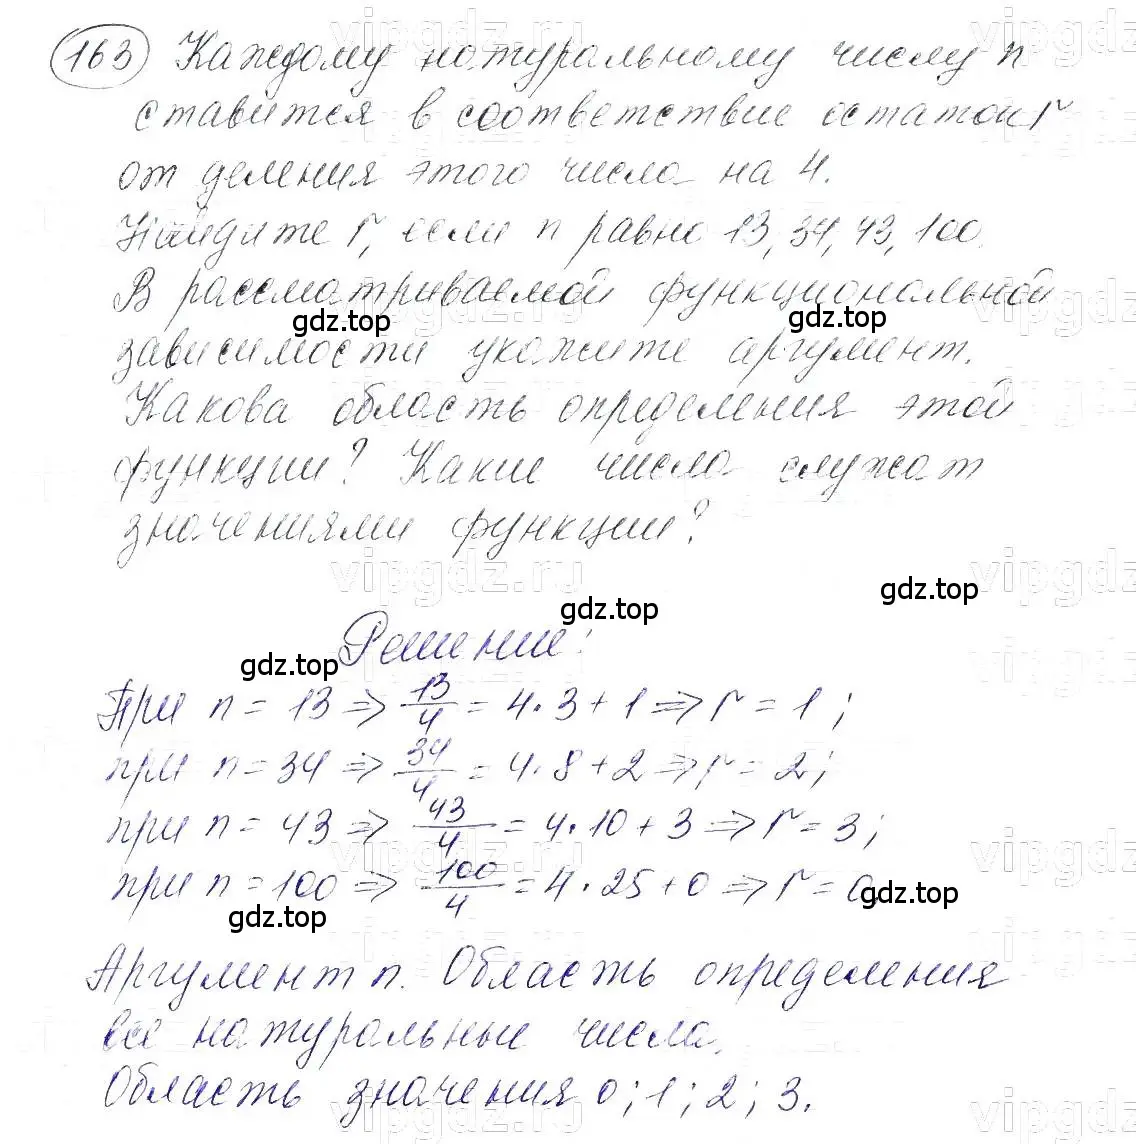 163 Каждому натуральному числу n
ставится в соответствие остаток r
от деления этого числа на 4.
Найдите r, если n равно 13, 34, 43, 100.
В рассматриваемой функциональной
gdz.top gdz.top
зависимости укажите аргумент.
Какова область определения этой
функции? Какие числа служат
значениями функции?
vipgdz.ru
gdz.top
gdz.top
Решение:
gdz.top
При n = 13 => 13/4 = 4·3+1 => r = 1;
при n = 34 => 34/4 = 4·8+2 => r = 2;
при n = 43 => 43/4 = 4·10+3 => r = 3;
при n = 100 => 100/4 = 4·25+0 => r = 0,
gdz.top gdz.top
Аргумент n. Область определения
все натуральные числа.
Область значения 0; 1; 2; 3.
vipgdz.ru